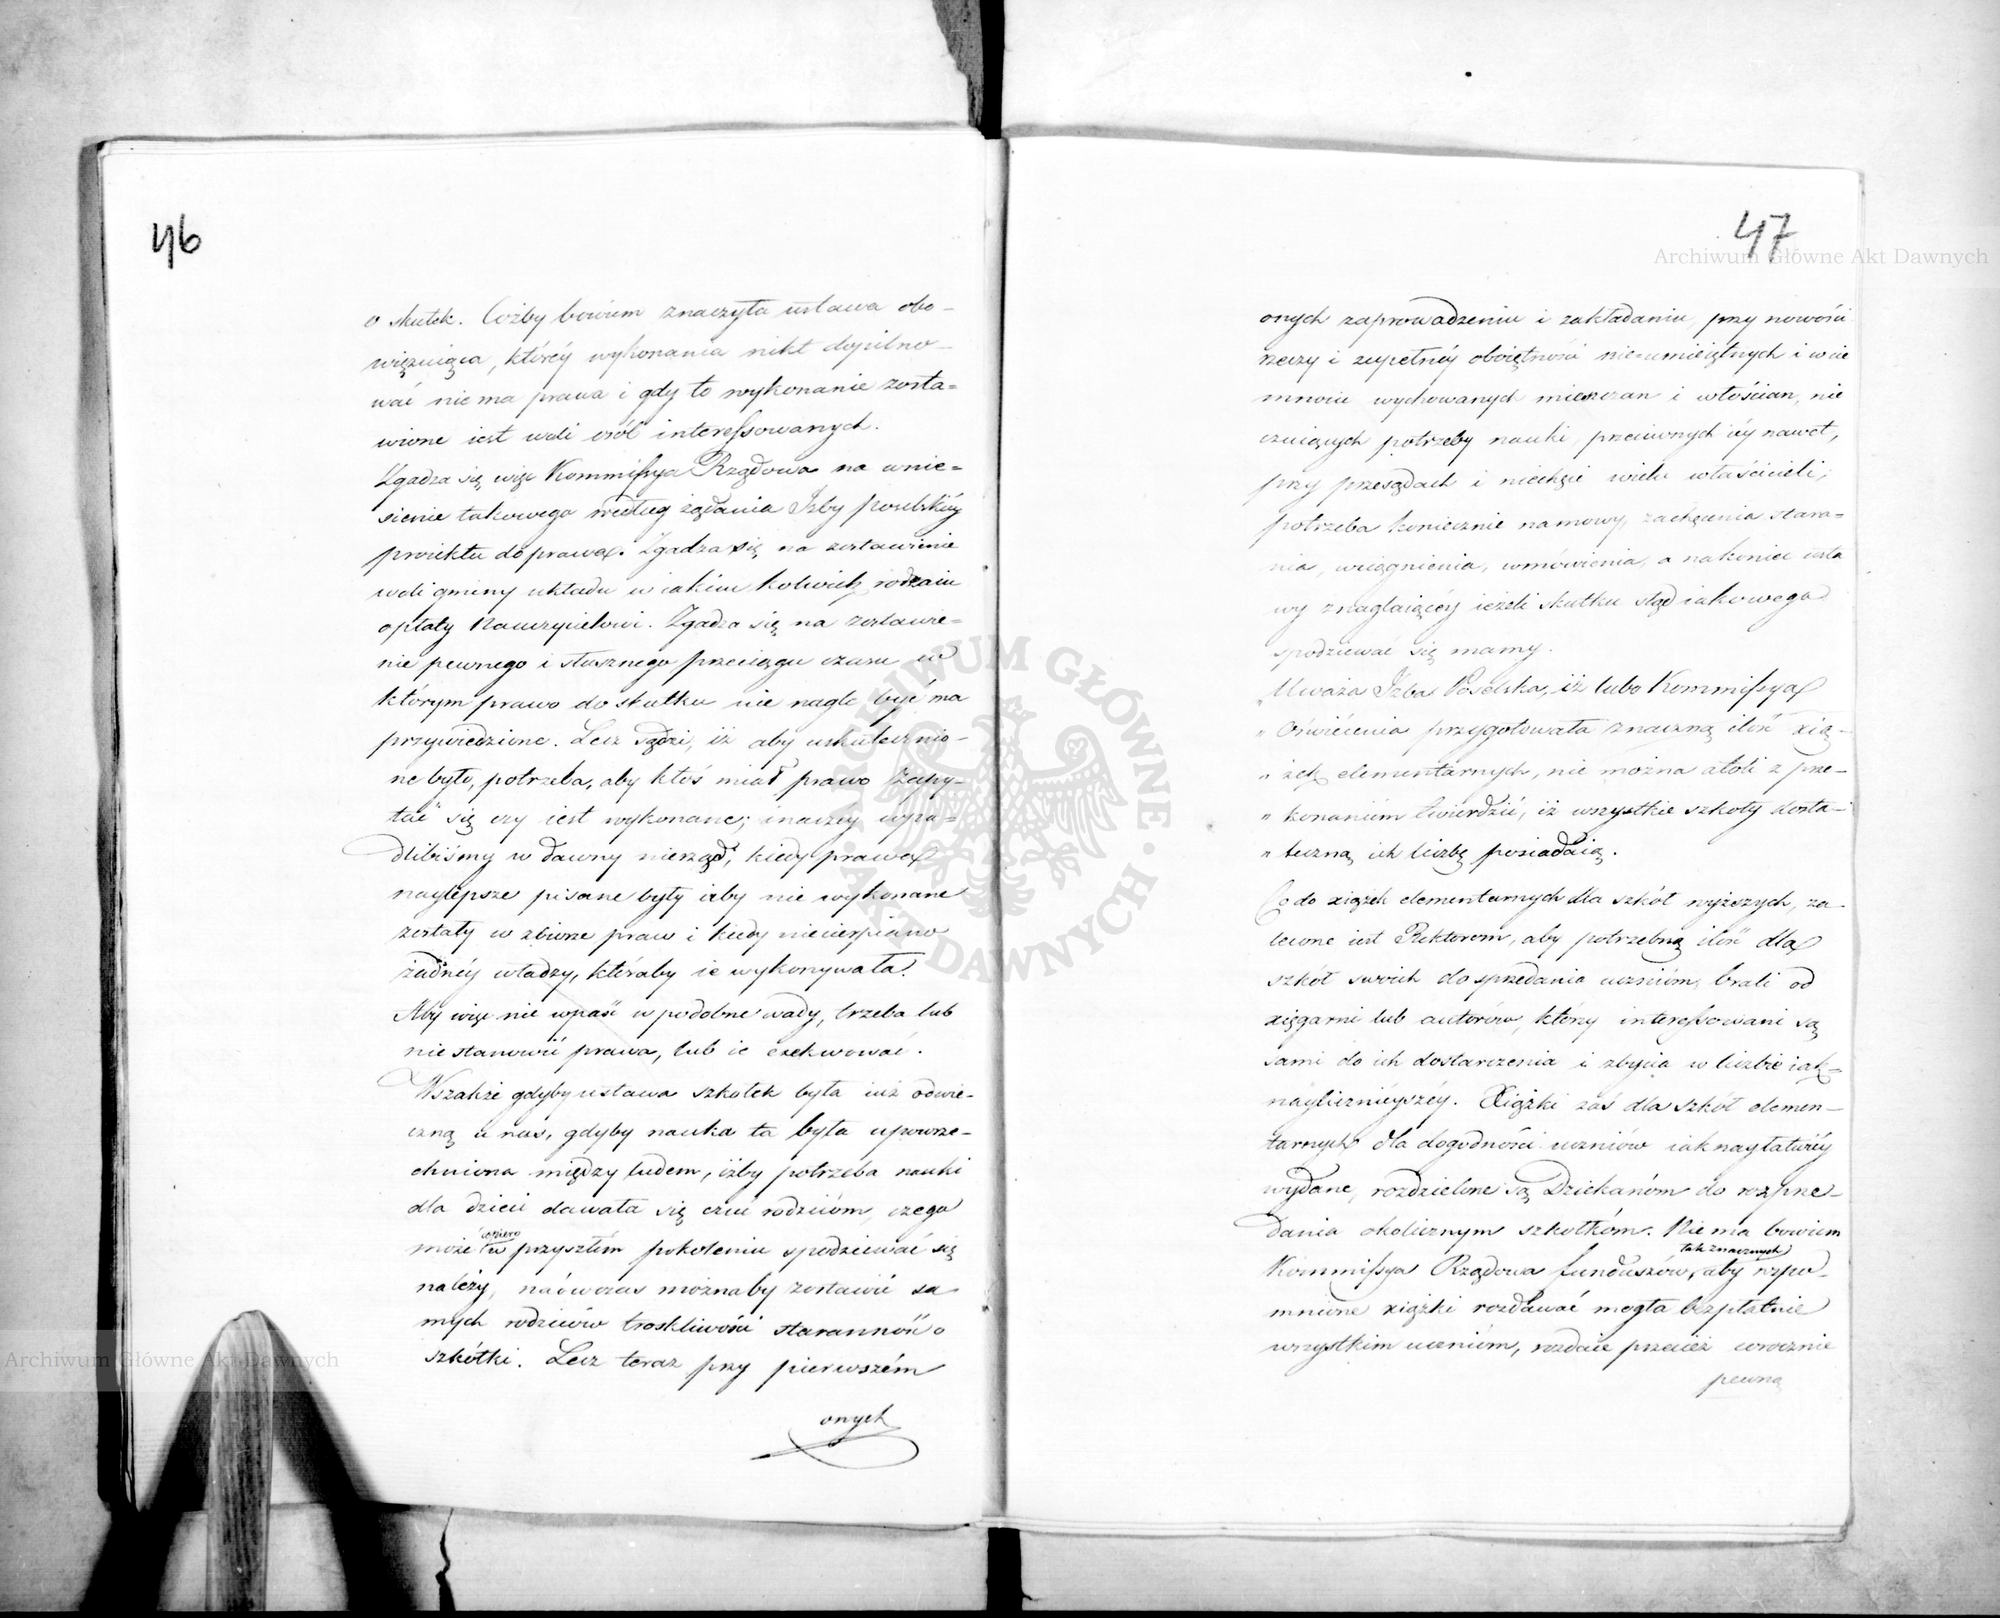 46
o skutek. Cóżby bowiem znaczyła ustawa obo-
więzuiąca, któréy wykonania nikt dopilno-
wać nie ma prawa i gdy to wykonanie zosta=
wione iest woli osób interessowanych.
Zgadza się więc Kommissya Rządowa na wnie=
sienie takowego według żądania Izby poselskiéy
proiektu do prawa. Zgadza się na zostawienie
woli gminy układu w iakim kolwiek rodzaiu
opłaty Nauczycielowi. Zgadza się na zostawie=
nie pewnego i słusznego przeciągu czasu w
którym prawo do skutku nie nagle być ma
przywiedzione. Lecz sądzi, iż aby uskutecznio-
ne było, potrzeba, aby ktoś miał prawo zapy-
tać się czy iest wykonane; inaczéy wpa=
dlibyśmy w dawny nierząd, kiedy prawa
naylepsze pisane były iżby nie wykonane
zostały w zbiorze praw i kiedy niecierpiano
żadnéy władzy, któraby ie wykonywała.
Aby więc nie wpaść w podobne wady, trzeba lub
nie stanowić prawa, lub ie exekwować.
Wszakże gdyby ustawa szkółek była iuż odwie-
czną u nas, gdyby nauka ta była upowsze-
chniona między ludem, iżby potrzeba nauki
dla dzieci dawała się czuć rodzicóm, czego
dopiero
może w przyszłém pokoleniu spodziewać się
należy, naówczas możnaby zostawić sa
mych rodziców troskliwości staranność o
szkółki. Lecz teraz przy pierwszém
onych
47
onych zaprowadzeniu i zakładaniu, przy nowości
rzeczy i zupełnéy oboiętności nie=umieiętnych i w cie
mnocie wychowanych mieszczan i włościan, nie
czuiących potrzeby nauki, przeciwnych iéy nawet,
przy przesądach i niechęci wielu właścicieli;
potrzeba koniecznie namowy, zachęcenia stara=
nia, wciągnienia, wmówienia, a nakoniec usta
wy znaglaiącéy ieżeli skutku stąd iakowego
spodziewać się mamy.
„ Uważa Izba Poselska, iż lubo Kommissya
„ Oświecenia przygotowała znaczną ilość xią-
„ żek elementarnych, nie można atoli z prze-
„ konaniem twierdzić, iż wszystkie szkoły dosta-
„ teczną ich liczbę posiadaią.
Co do xiążek elementarnych dla szkół wyższych, za-
lecone iest Rektorom, aby potrzebną ilość dla
szkół swoich do sprzedania uczniom, brali od
xięgarni lub autorów, którzy interessowani są
sami do ich dostarczenia i zbycia w liczbie iak=
naylicznieyszéy. Xiążki zaś dla szkół elemen-
tarnych dla dogodności uczniów iak nayłatwiéy
wydane, rozdzielone są Dziekanóm do rozprze-
dania okolicznym szkółkóm. Nie ma bowiem
tak znacznych
Kommissya Rządowa funduszów, aby wspo-
mnione xiążki rozdawać mogła bezpłatnie
wszystkim uczniom, rozdaie przecież corocznie
pewną
Archiwum Główne Akt Dawnych
Archiwum Główne Akt Dawnych
ARCHIWUM GŁÓWNE AKT DAWNYCH